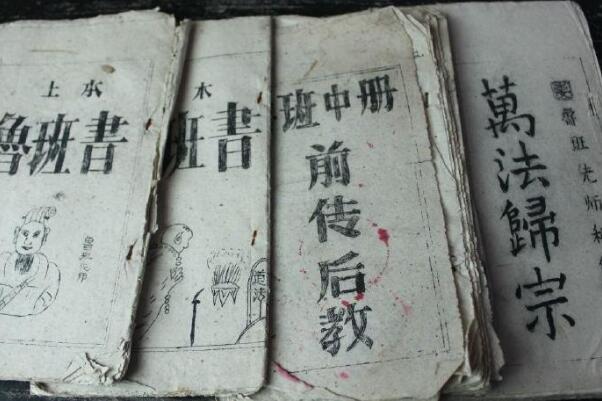 上本
魯班書
木
班書
道法
班中册
前传后教
萬法歸宗
魯班先师秘